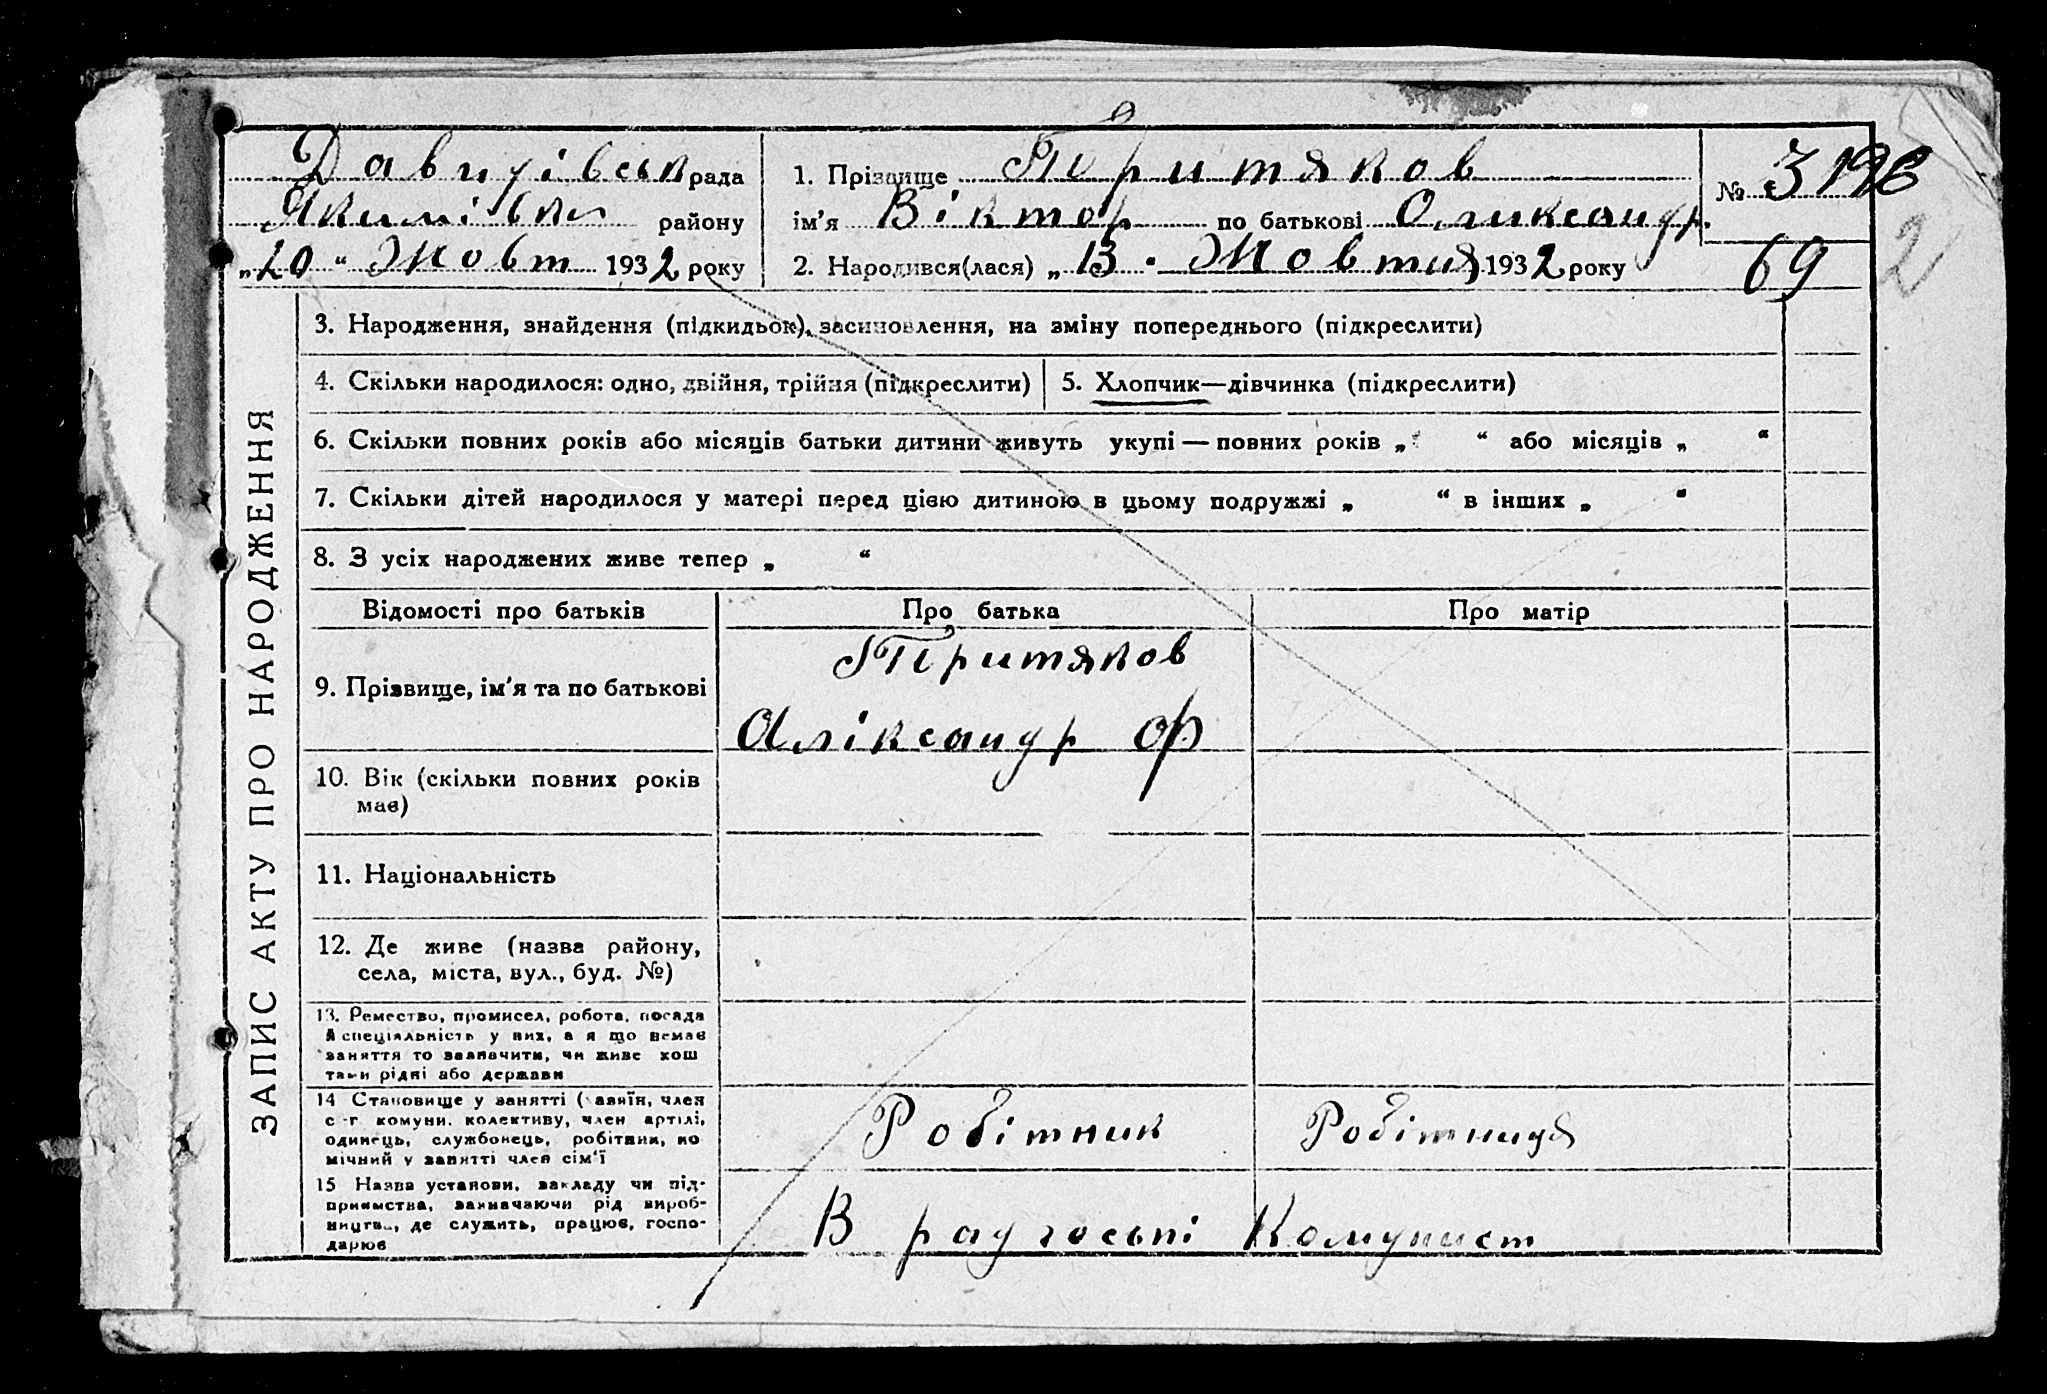 Давидівськ рада
Якимівки району
„20“ Жовт 1932 року
1. Прізвище Теритяков
ім'я Віктор по батькові Олександр.
2. Народився(лася) „13. Жовтня 1932 року
№ 3
69
2
ЗАПИС АКТУ ПРО НАРОДЖЕННЯ
3. Народження, знайдення (підкидьок), засиновлення, на зміну попереднього (підкреслити)
4. Скільки народилося: одно, двійня, трійня (підкреслити)
5. Хлопчик—дівчинка (підкреслити)
6. Скільки повних років або місяців батьки дитини живуть укупі — повних років „ “ або місяців „ “
7. Скільки дітей народилося у матері перед цією дитиною в цьому подружжі „ “ в інших „ “
8. З усіх народжених живе тепер „ “
Відомості про батьків
Про батька
Про матір
9. Прізвище, ім'я та по батькові
Теритяков
Аліксандр Ф
10. Вік (скільки повних років
має)
11. Національність
12. Де живе (назва району,
села, міста, вул., буд. №)
13. Ремество, промисел, робота, посада
й спеціяльність у них, а я що немає
заняття то зазначити, чи живе кош
тами рідні або держави
14 Становище у занятті (хазяїн, член
с-г комуни. колективу, член артілі,
одинець, службовець, робітник, по
мічний у занятті член сім'ї
Робітник
Робітниця
15 Назва установи, закладу чи під-
приємства, зазначаючи рід вироб-
ництва, де служить, працює, госпо-
дарює
В радгоспі Комунист